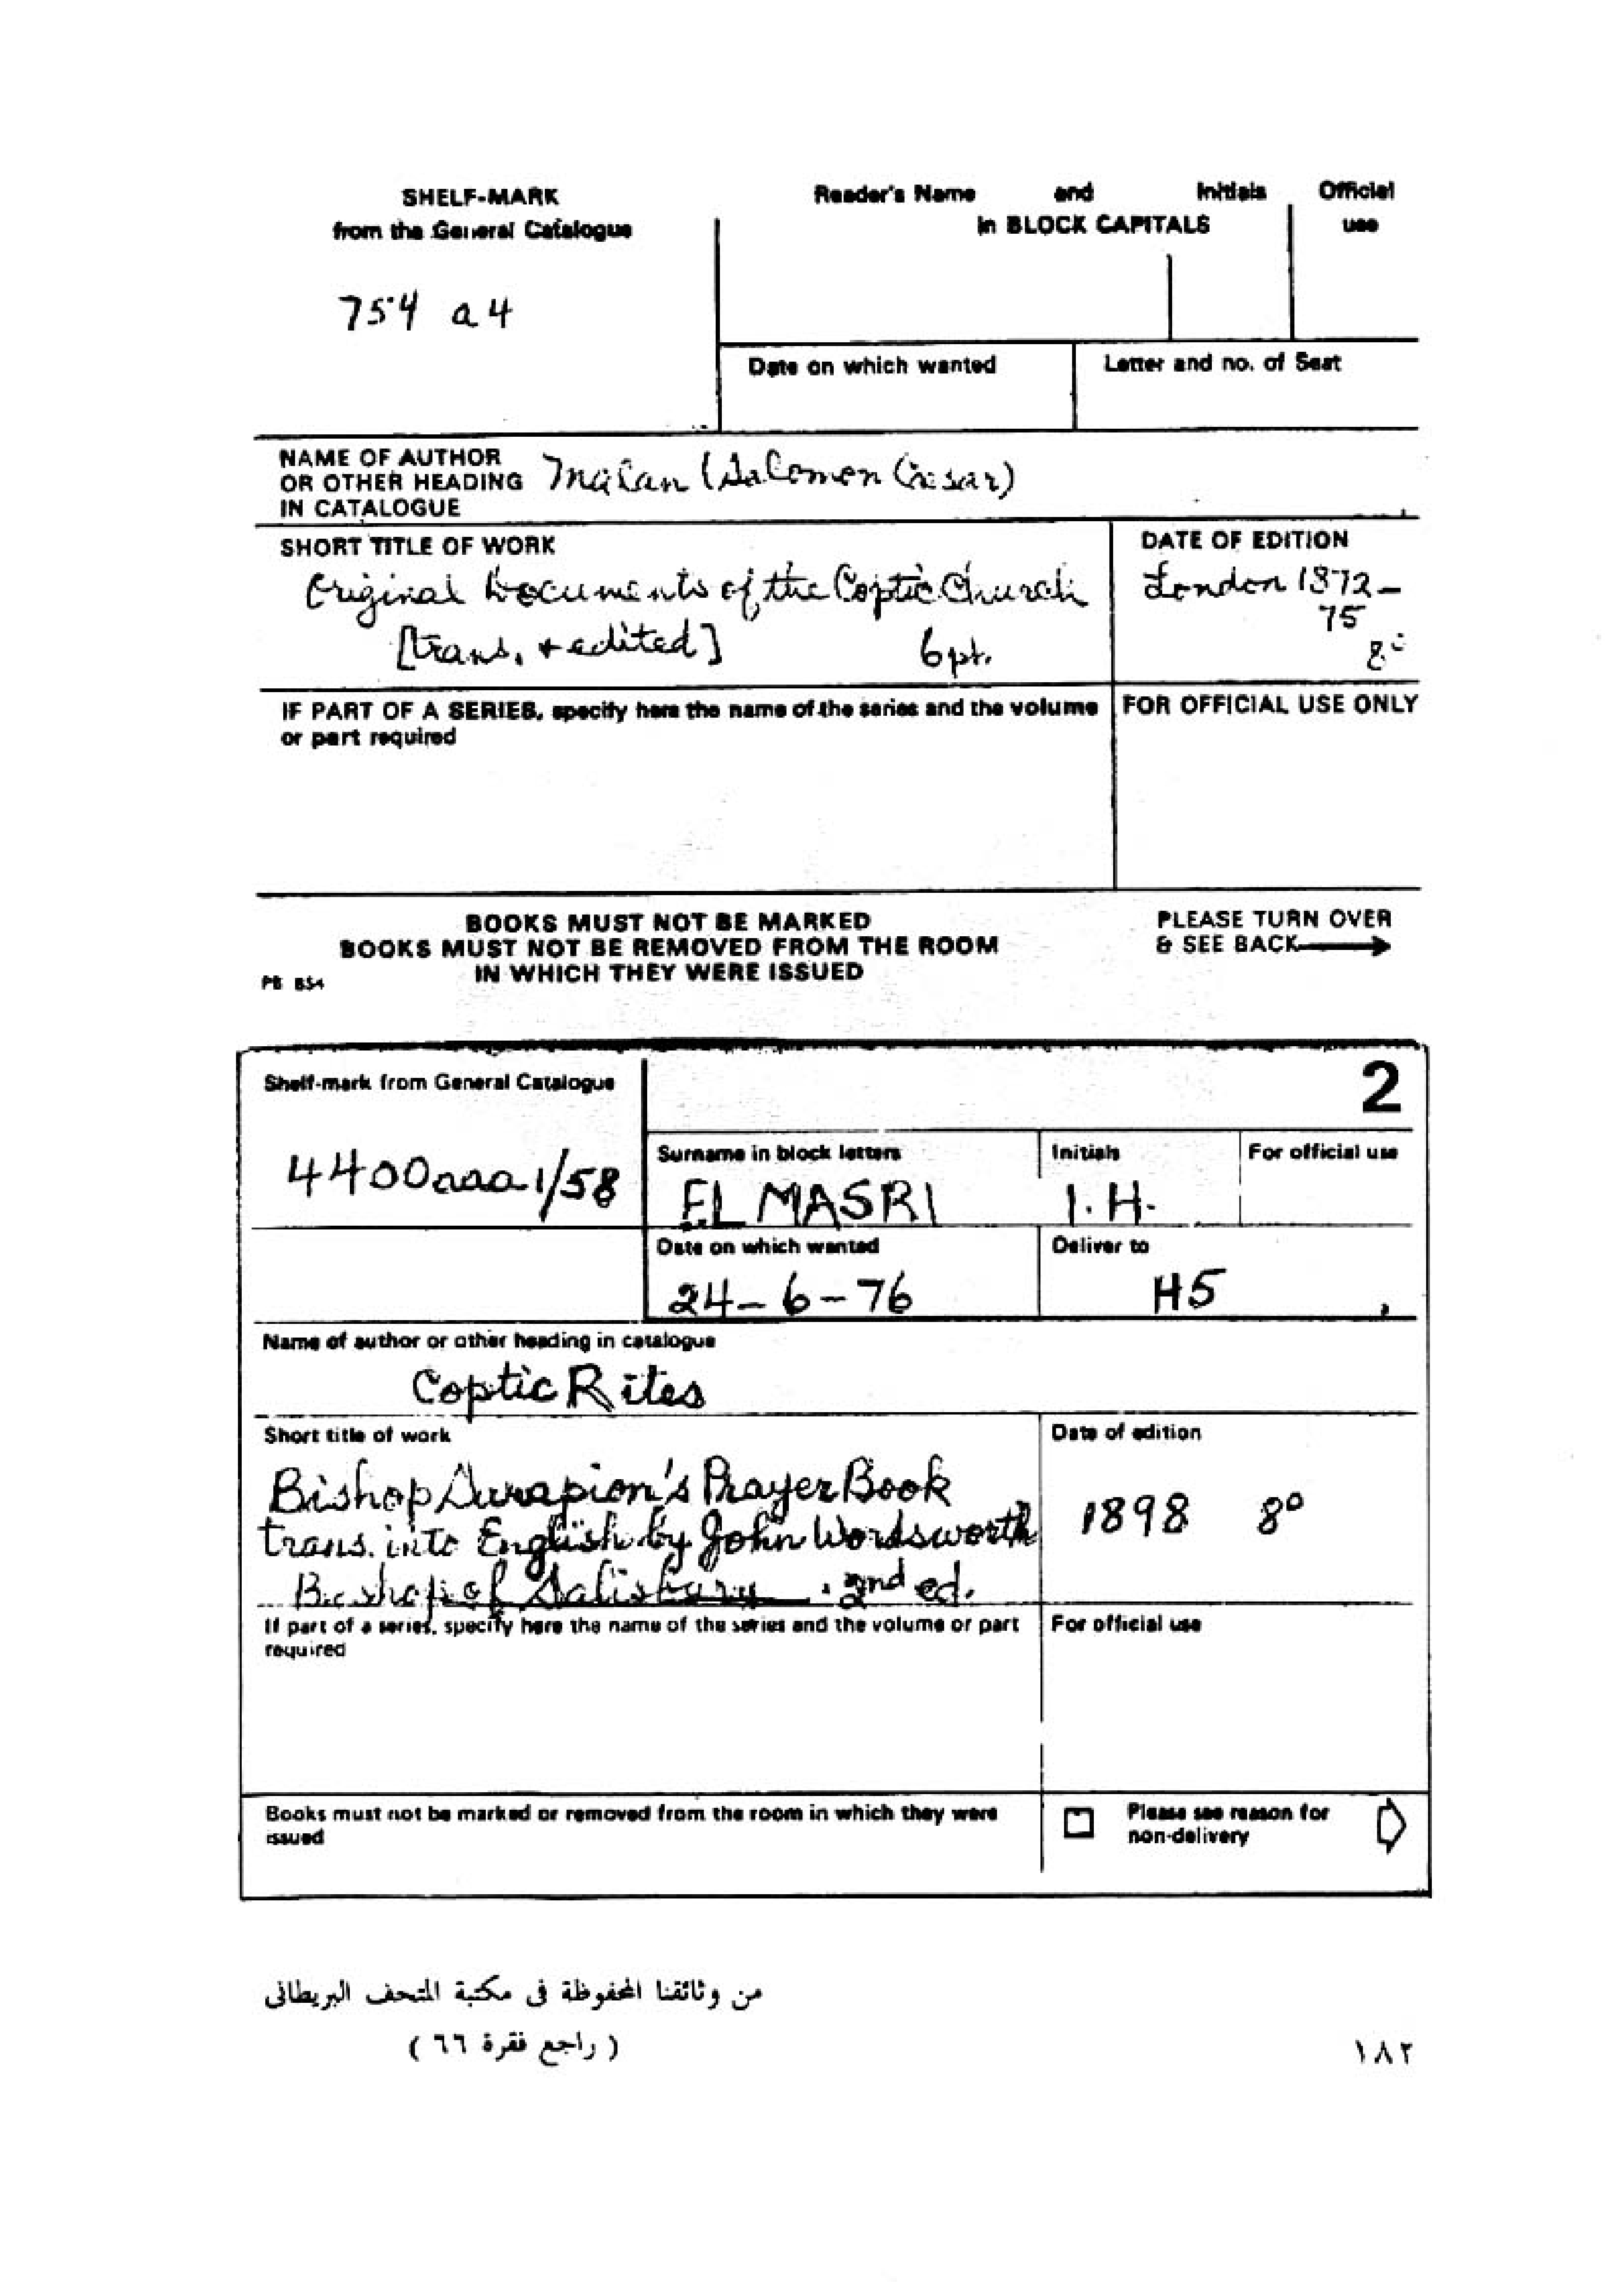 SHELF-MARK
from the General Catalogue
Reader's Name and Initials
in BLOCK CAPITALS
Official
use
754 a 4
Date on which wanted
Letter and no. of Seat
NAME OF AUTHOR
OR OTHER HEADING
IN CATALOGUE
Malan (Salomon Caesar)
SHORT TITLE OF WORK
Original Documents of the Coptic Church
[trans. + edited] 6 pt.
DATE OF EDITION
London 1872-
75
8°
IF PART OF A SERIES, specify here the name of the series and the volume
or part required
FOR OFFICIAL USE ONLY
BOOKS MUST NOT BE MARKED
BOOKS MUST NOT BE REMOVED FROM THE ROOM
IN WHICH THEY WERE ISSUED
PLEASE TURN OVER
& SEE BACK
2
Shelf-mark from General Catalogue
4400aaa 1/58
Surname in block letters
EL MASRI
Initials
I. H.
For official use
Date on which wanted
24-6-76
Deliver to
H5
Name of author or other heading in catalogue
Coptic Rites
Short title of work
Bishop Sarapion's Prayer Book
trans. into English by John Wordsworth
Bishop of Salisbury. 2nd ed.
Date of edition
1898 8°
If part of a series, specify here the name of the series and the volume or part
required
For official use
Books must not be marked or removed from the room in which they were
issued
Please see reason for
non-delivery
من وثائقنا المحفوظة فى مكتبة المتحف البريطانى
( راجع فقرة ٦٦ )
١٨٢